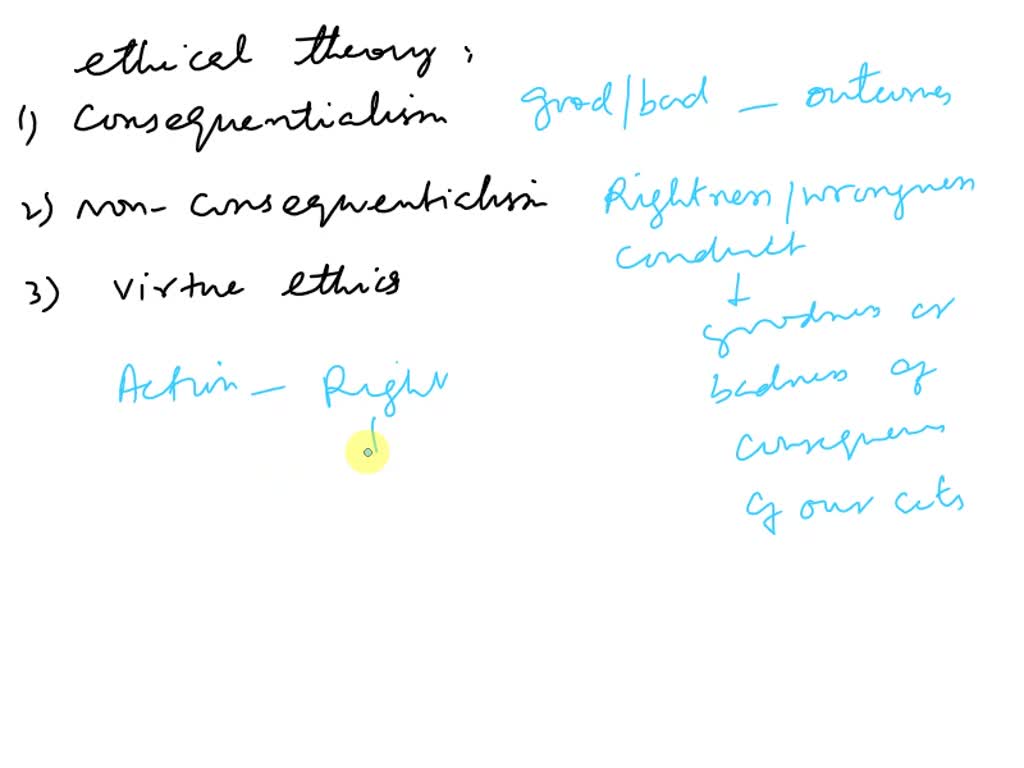 ethical theory:
1) Consequentialism good/bad - outcomes
2) non-consequentialism Rightness/wrongness
conduct
3) virtue ethics
goodness or
badness of
Action - Right
consequences
of our acts